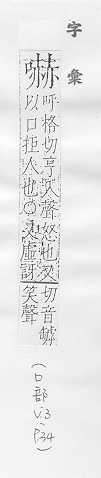 字彙
嚇
呼格切亨入聲怒也又
以口拒人也○又虛訝
切音罅
笑聲
(口部
V.3
P34)